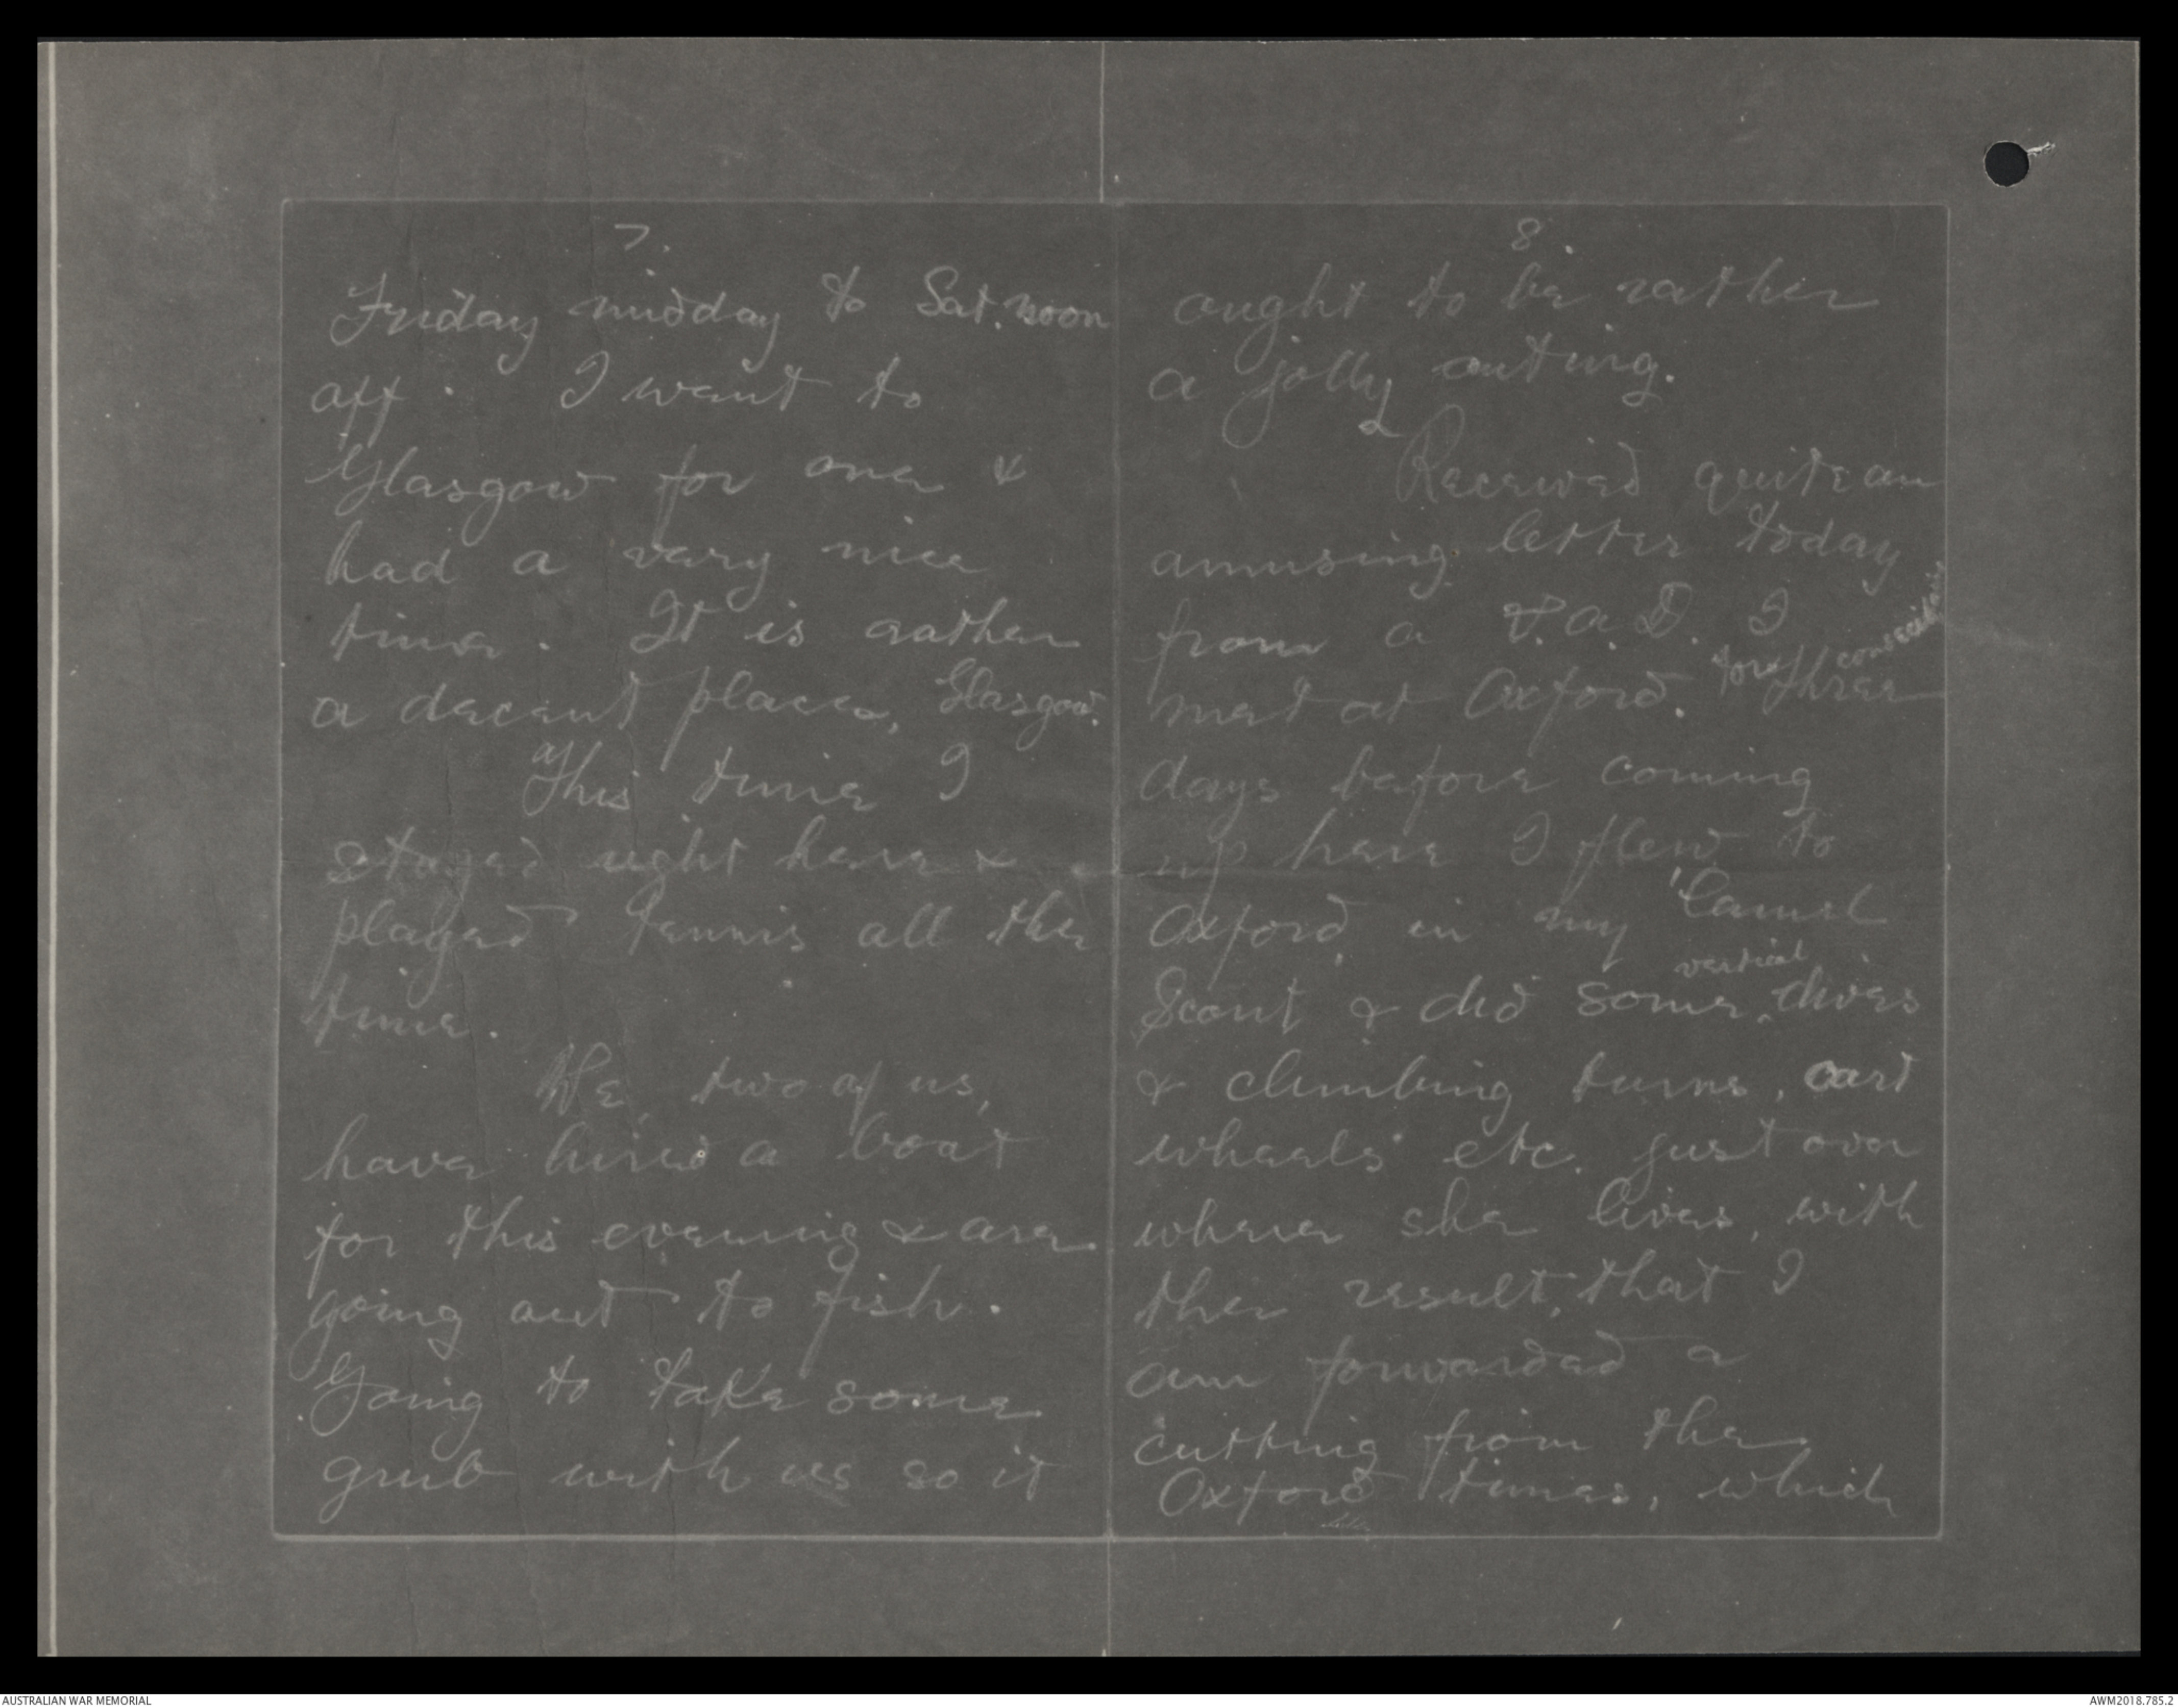 7.
Friday midday to Sat. noon
off. I went to
Glasgow for one &
had a very nice
time. It is rather
a decent place, Glasgow.
This time I
stayed right here &
played Tennis all the
time.
We, two of us,
have hired a boat
for this evening & are
going out to fish.
Going to take some
grub with us so it
8.
ought to be rather
a jolly outing.
Received quite an
amusing letter today
from a V.A.D. I
met at Oxford. Three
days before coming
up here I flew to
Oxford in my 'Camel
vertical
Scout & did some dives
& climbing turns, cart
wheels etc. just over
where she lives, with
the result, that I
am forwarded a
cutting from the
Oxford times, which
AUSTRALIAN WAR MEMORIAL
AWM2018.785.2